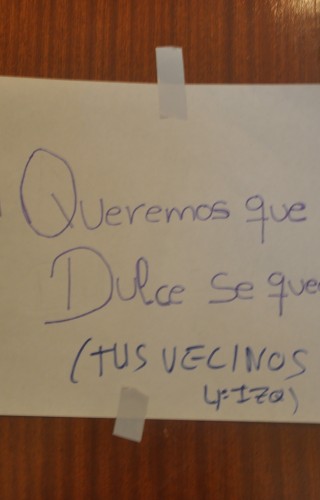 Queremos que
Dulce se que
(TUS VECINOS
4º IZQ)